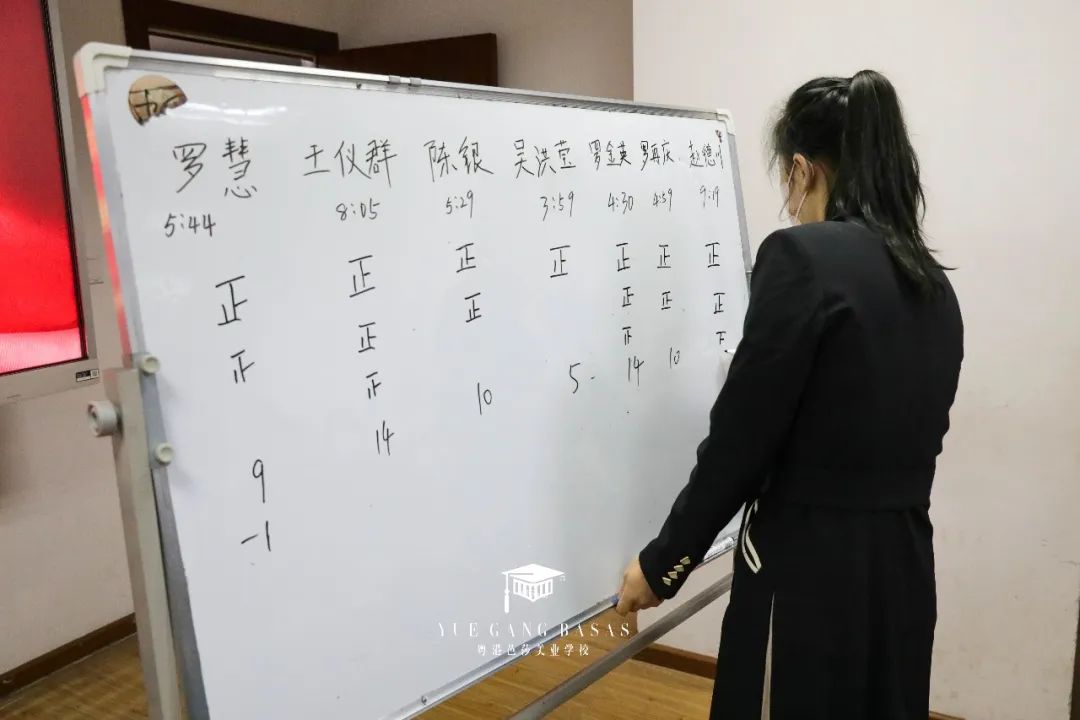 罗慧 王仪群 陈银 吴洪莹 罗金英 罗再庆 赵德川
5:44 8:05 5:29 3:59 4:30 4:59 9:19
正 正 正 正 正 正 正
正 正 正 正 正 正
正 正
14 10 5 - 14 10
9
-1
YUE GANG BASAS
粤港芭莎美业学校